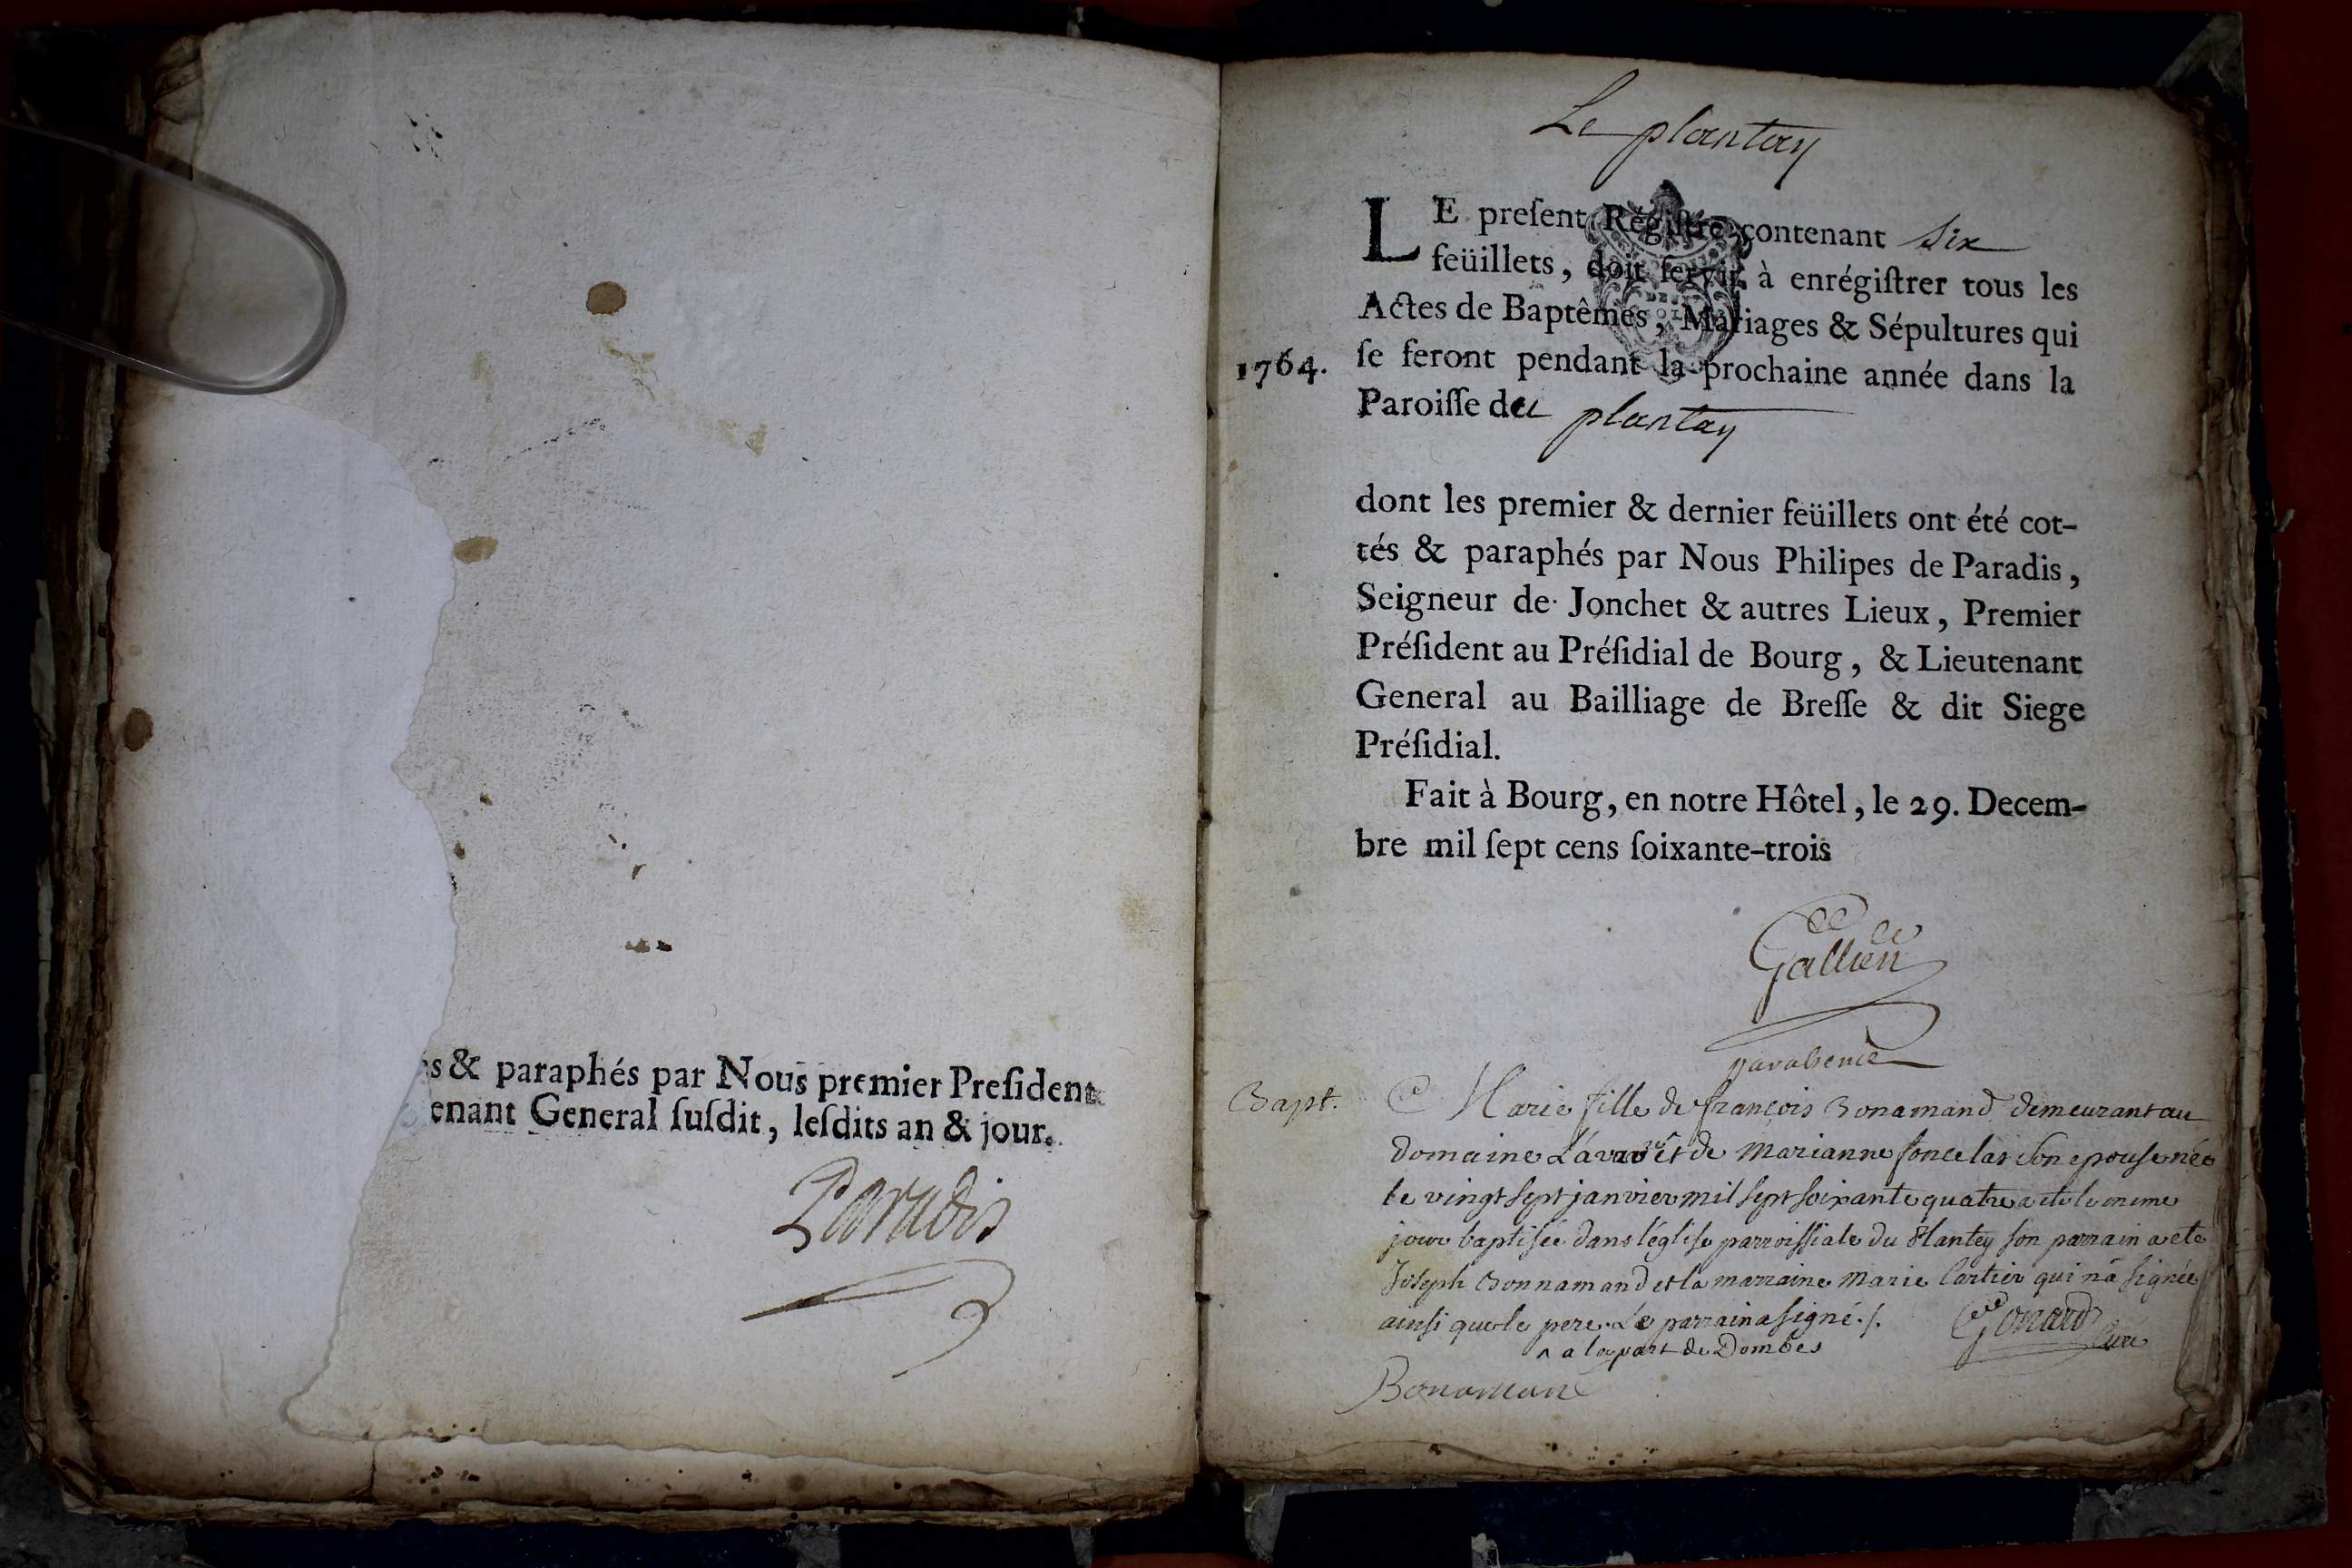 s & paraphés par Nous premier Preſident
enant General ſuſdit, leſdits an & jour.
Paradis
Le plantay
LE preſent Régiſtre contenant Six
feüillets, doit ſervir à enrégiſtrer tous les
Actes de Baptêmes, Mariages & Sépultures qui
1764. ſe feront pendant la prochaine année dans la
Paroiſſe du plantay
dont les premier & dernier feüillets ont été cot-
tés & paraphés par Nous Philipes de Paradis,
Seigneur de Jonchet & autres Lieux, Premier
Préſident au Préſidial de Bourg, & Lieutenant
General au Bailliage de Breſſe & dit Siege
Préſidial.
Fait à Bourg, en notre Hôtel, le 29. Decem-
bre mil ſept cens ſoixante-trois
Gallien
par absence
Bapt. Marie fille de françois Bonamand demeurant au
domaine et de Marianne son epouse née
le vingt sept janvier mil sept soixante quatre a ete le meme
jour baptisée dans l'église parroissiale du Plantey son parrain a ete
Joseph Bonnamand et la marraine Marie Cartier qui n'a signée
ainsi que le pere. Le parrain a signé ./. Gonard Curé
^ a la part de Dombes
Bonamand